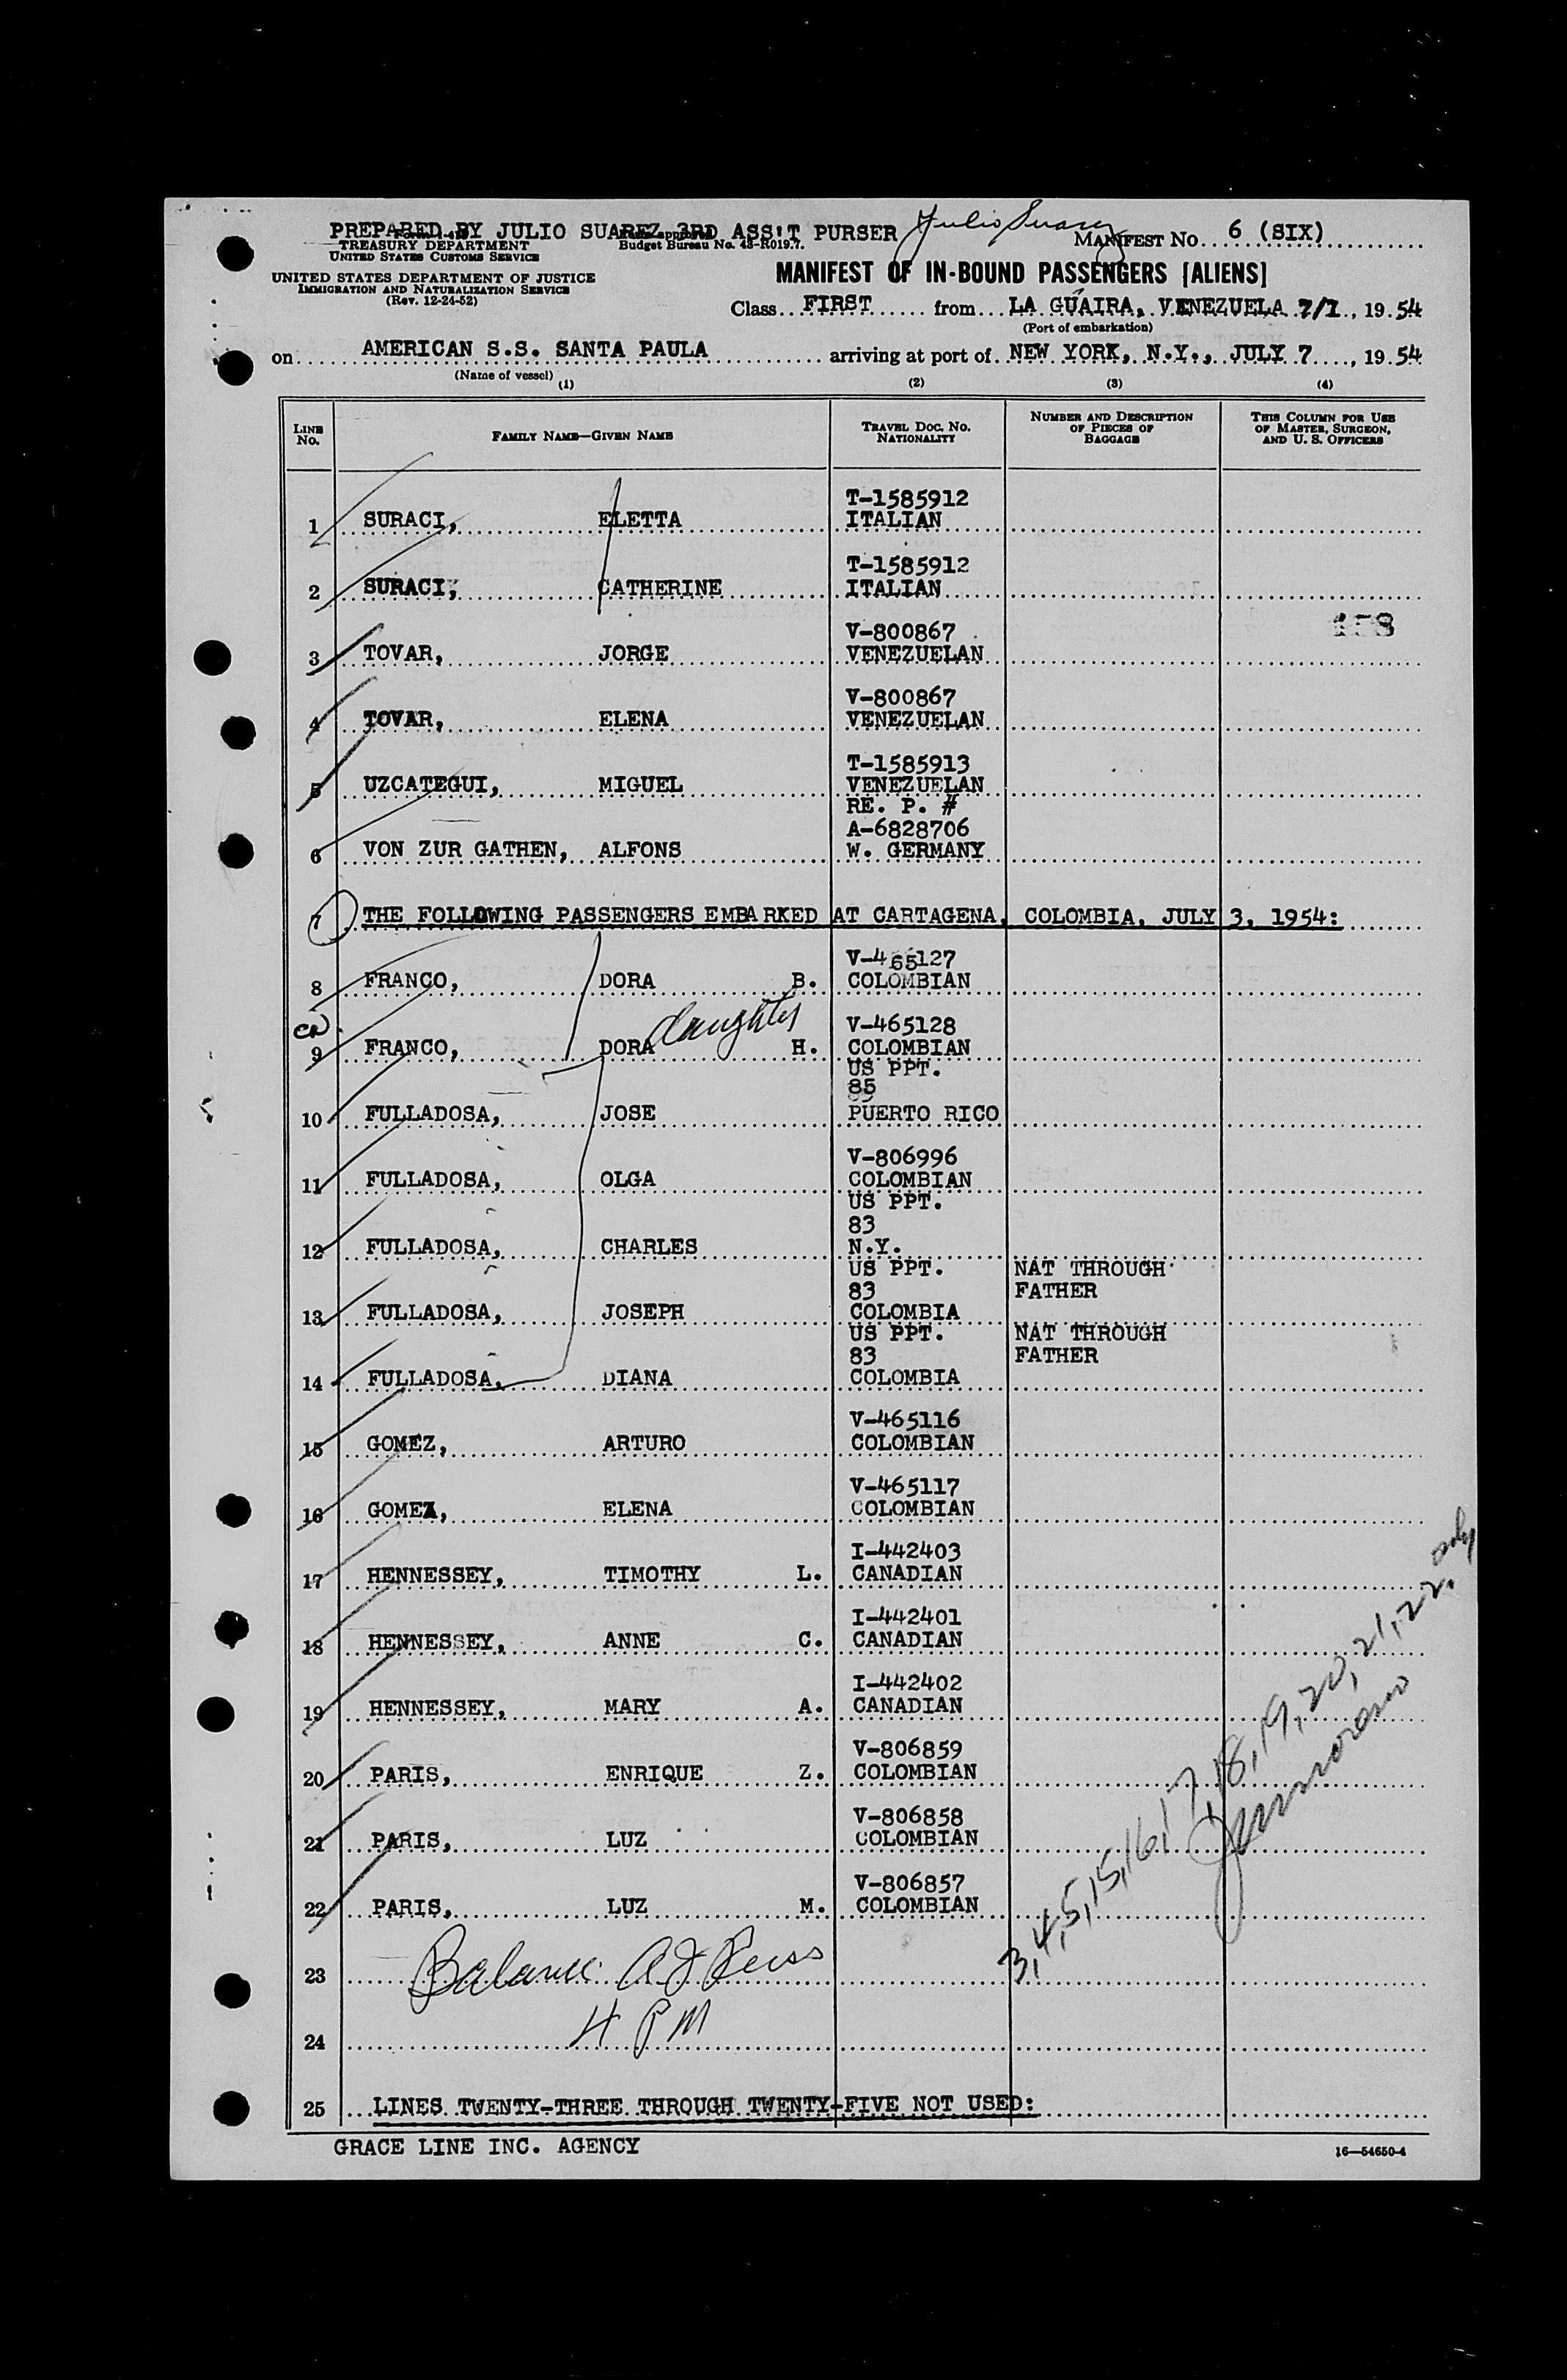 PREPARED BY JULIO SUAREZ 3RD ASS'T PURSER Julio Suarez
MANIFEST No. 6 (SIX)
TREASURY DEPARTMENT
UNITED STATES CUSTOMS SERVICE
Budget Bureau No. 43-R019.7.
UNITED STATES DEPARTMENT OF JUSTICE
IMMIGRATION AND NATURALIZATION SERVICE
(Rev. 12-24-52)
MANIFEST OF IN-BOUND PASSENGERS [ALIENS]
Class FIRST from LA GUAIRA, VENEZUELA 7/1, 1954
(Port of embarkation)
on AMERICAN S.S. SANTA PAULA arriving at port of NEW YORK, N.Y., JULY 7, 1954
(Name of vessel)
(1) (2) (3) (4)
LINE NO. FAMILY NAME—GIVEN NAME TRAVEL DOC. NO. NATIONALITY NUMBER AND DESCRIPTION OF PIECES OF BAGGAGE THIS COLUMN FOR USE OF MASTER, SURGEON, AND U. S. OFFICERS
T-1585912
1 SURACI, ELETTA ITALIAN
T-1585912
2 SURACI, CATHERINE ITALIAN
158
V-800867
3 TOVAR, JORGE VENEZUELAN
V-800867
4 TOVAR, ELENA VENEZUELAN
T-1585913
5 UZCATEGUI, MIGUEL VENEZUELAN
RE. P. #
A-6828706
6 VON ZUR GATHEN, ALFONS W. GERMANY
7 THE FOLLOWING PASSENGERS EMBARKED AT CARTAGENA, COLOMBIA, JULY 3, 1954:
V-465127
8 FRANCO, DORA B. COLOMBIAN
daughter
V-465128
9 FRANCO, DORA H. COLOMBIAN
US PPT.
85
10 FULLADOSA, JOSE PUERTO RICO
V-806996
11 FULLADOSA, OLGA COLOMBIAN
US PPT.
83
12 FULLADOSA, CHARLES N.Y.
US PPT. NAT THROUGH
83 FATHER
13 FULLADOSA, JOSEPH COLOMBIA
US PPT. NAT THROUGH
83 FATHER
14 FULLADOSA, DIANA COLOMBIA
V-465116
15 GOMEZ, ARTURO COLOMBIAN
V-465117
16 GOMEZ, ELENA COLOMBIAN
I-442403
17 HENNESSEY, TIMOTHY L. CANADIAN
I-442401
18 HENNESSEY, ANNE C. CANADIAN
I-442402
19 HENNESSEY, MARY A. CANADIAN
V-806859
20 PARIS, ENRIQUE Z. COLOMBIAN
V-806858
21 PARIS, LUZ COLOMBIAN
V-806857
22 PARIS, LUZ M. COLOMBIAN
3,4,5,15,16,17,18,19,20,21,22 only
23 Balance AJ Reiss
24 4 PM
25 LINES TWENTY-THREE THROUGH TWENTY-FIVE NOT USED:
GRACE LINE INC. AGENCY
16—54650-4